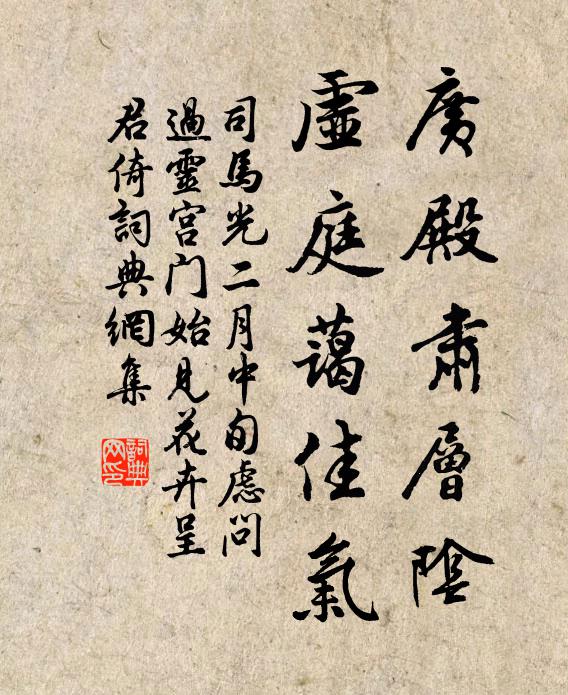 廣殿肅層陰
虛庭藹佳氣
司馬光二月中旬慮問
過靈宮门始見花卉呈
君倚詞典網集
詞典
网印